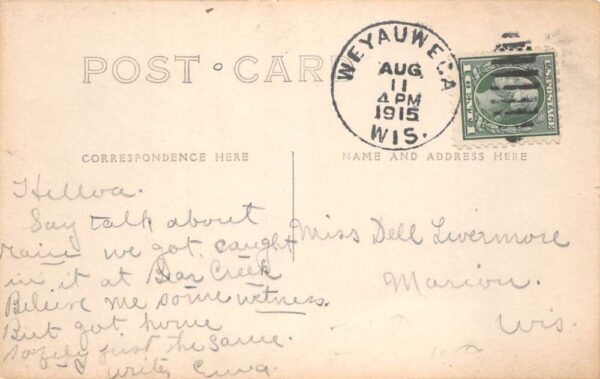 POST CARD
WEYAUWEGA
AUG
11
4 PM
1915
WIS.
U.S. POSTAGE
1 CENT 1
CORRESPONDENCE HERE
NAME AND ADDRESS HERE
Say talk about
rain we got caught
in it at Bear Creek
Beleive me some wetness.
But got home
safely just the same.
write
Miss Dell Livermore
Marion.
Wis.